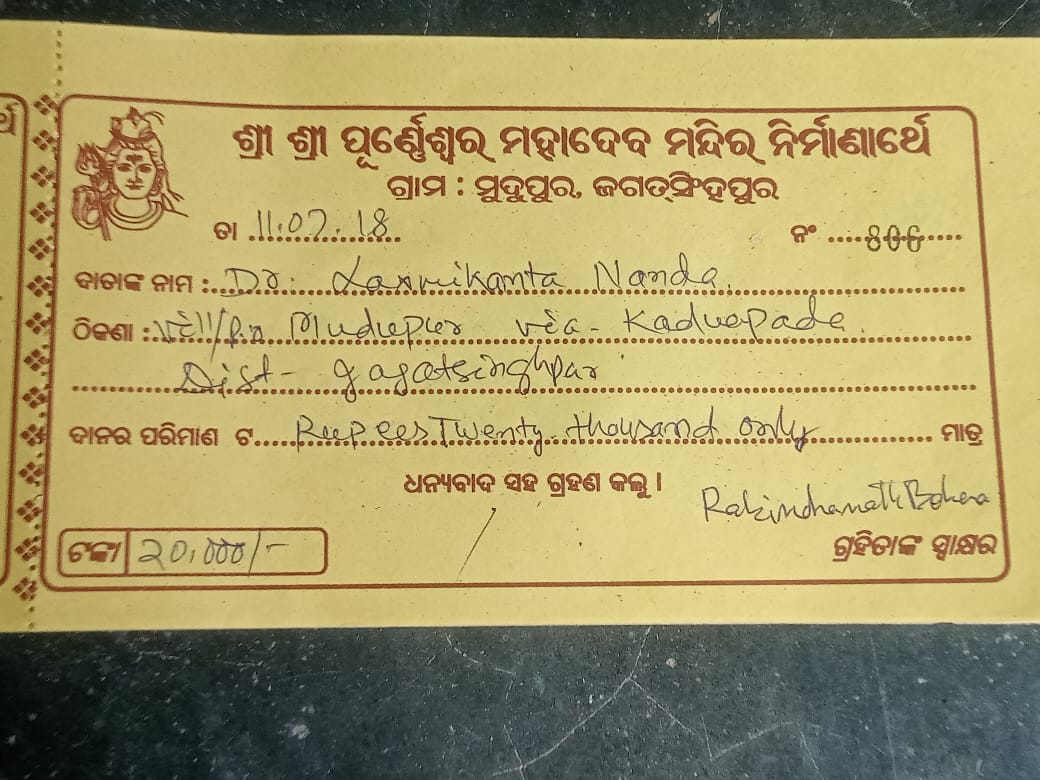 ର୍ଥେ
ଶ୍ରୀ ଶ୍ରୀ ପୂର୍ଣ୍ଣେଶ୍ୱର ମହାଦେବ ମନ୍ଦିର ନିର୍ମାଣାର୍ଥେ
ଗ୍ରାମ : ମୁଦୁପୁର, ଜଗତ୍‌ସିଂହପୁର
ତା 11.07.18 ନଂ 806
ଦାତାଙ୍କ ନାମ : Dr. Laxmikanta Nanda.
ଠିକଣା : vill/p.o Mudupur via - Kaduapada.
Dist - Jagatsinghpur
ଦାନର ପରିମାଣ ଟ Rupees Twenty thousand only ମାତ୍ର
ଧନ୍ୟବାଦ ସହ ଗ୍ରହଣ କଲୁ ।
Rabindranath Behera
ଟଙ୍କା 20,000/-
ଗ୍ରହିତାଙ୍କ ସ୍ୱାକ୍ଷର